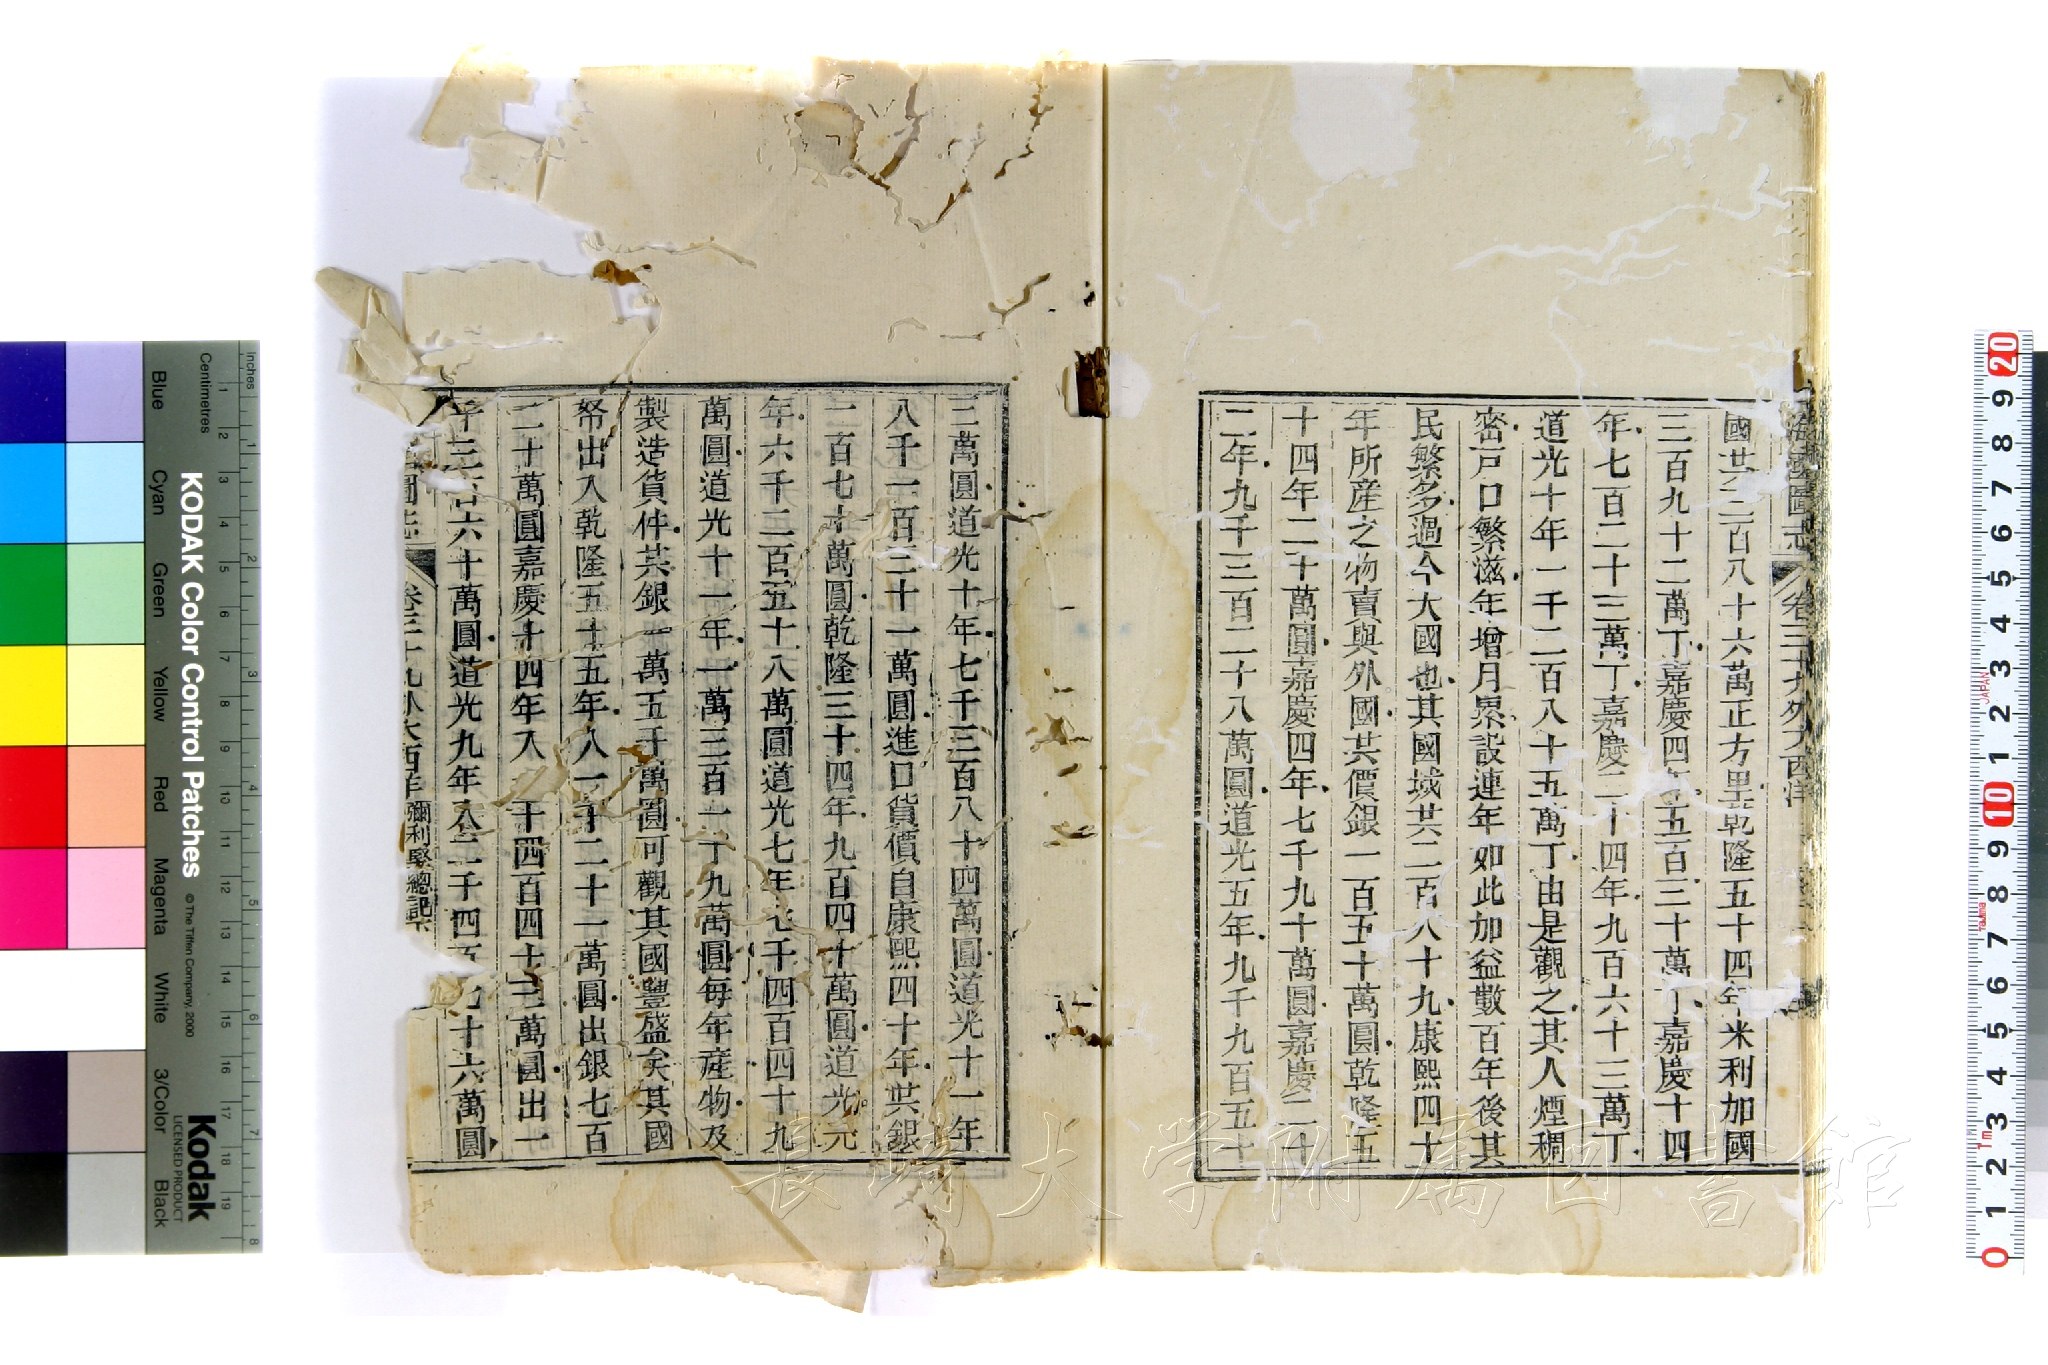 海國圖志
卷三十九外大西洋
國共二百八十六萬正方里乾隆五十四年米利加國
三百九十二萬丁嘉慶四年五百三十萬丁嘉慶十四
年七百二十三萬丁嘉慶二十四年九百六十三萬丁
道光十年一千二百八十五萬丁由是觀之其人煙稠
密戸口繁滋年增月累設連年如此加益數百年後其
民繁多過今大國也其國域共二百八十九康熙四十
年所産之物賣與外國共價銀一百五十萬圓乾隆五
十四年二十萬圓嘉慶四年七千九十萬圓嘉慶二十
二年九千三百二十八萬圓道光五年九千九百五十
三萬圓道光十年七千三百八十四萬圓道光十一年
八千一百三十一萬圓進口貨價自康熙四十年共銀
二百七十萬圓乾隆三十四年九百四十萬圓道光元
年六千二百五十八萬圓道光七年七千四百四十九
萬圓道光十一年一萬三百一十九萬圓每年産物及
製造貨件共銀一萬五千萬圓可觀其國豐盛矣其國
帑出入乾隆五十五年入一千二十一萬圓出銀七百
二十萬圓嘉慶十四年入一千四百四十三萬圓出一
千三百六十萬圓道光九年入二千四百九十六萬圓
國志
卷三十九外大西洋彌利堅總記下
KODAK Color Control Patches
© The Tiffen Company, 2000
Kodak
LICENSED PRODUCT
Inches
Centimetres
Blue
Cyan
Green
Yellow
Red
Magenta
White
3/Color
Black
長崎大学附属図書館
JAPAN
1m